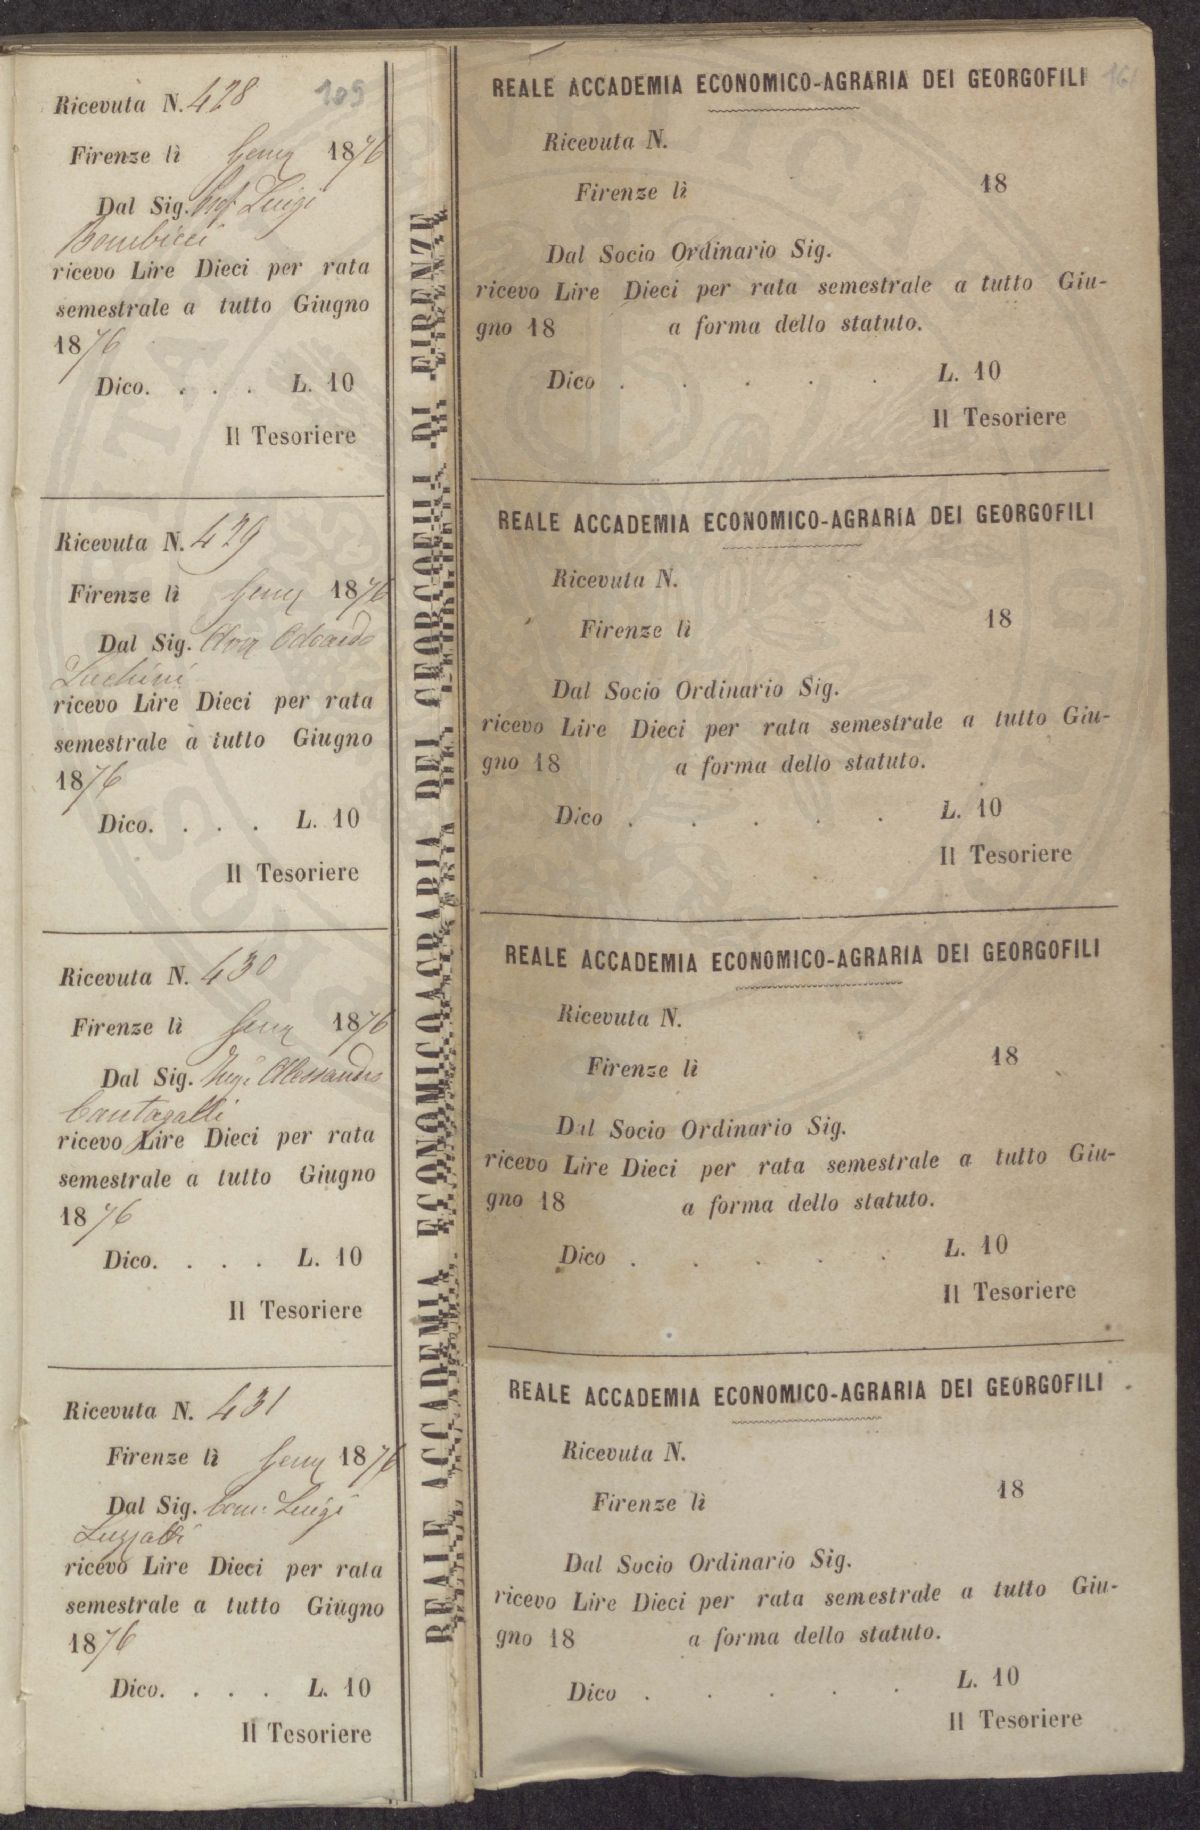 109
Ricevuta N. 428
Firenze lì Genn 1876
Dal Sig. Prof Luigi
Bombicci
ricevo Lire Dieci per rata
semestrale a tutto Giugno
1876
Dico. . . . L. 10
Il Tesoriere
Ricevuta N. 429
Firenze lì Genn 1876
Dal Sig. Avv Odoardo
Luchini
ricevo Lire Dieci per rata
semestrale a tutto Giugno
1876
Dico. . . . L. 10
Il Tesoriere
Ricevuta N. 430
Firenze lì Genn 1876
Dal Sig. Ing. Alessandro
Cantagalli
ricevo Lire Dieci per rata
semestrale a tutto Giugno
1876
Dico. . . . L. 10
Il Tesoriere
Ricevuta N. 431
Firenze lì Genn 1876
Dal Sig. Com. Luigi
Luzzatti
ricevo Lire Dieci per rata
semestrale a tutto Giugno
1876
Dico. . . . L. 10
Il Tesoriere
REALE ACCADEMIA ECONOMICO AGRARIA DEI GEORGOFILI DI FIRENZE
REALE ACCADEMIA ECONOMICO-AGRARIA DEI GEORGOFILI
Ricevuta N.
Firenze lì 18
Dal Socio Ordinario Sig.
ricevo Lire Dieci per rata semestrale a tutto Giu-
gno 18 a forma dello statuto.
Dico . . . . . L. 10
Il Tesoriere
REALE ACCADEMIA ECONOMICO-AGRARIA DEI GEORGOFILI
Ricevuta N.
Firenze lì 18
Dal Socio Ordinario Sig.
ricevo Lire Dieci per rata semestrale a tutto Giu-
gno 18 a forma dello statuto.
Dico . . . . . L. 10
Il Tesoriere
REALE ACCADEMIA ECONOMICO-AGRARIA DEI GEORGOFILI
Ricevuta N.
Firenze lì 18
Dal Socio Ordinario Sig.
ricevo Lire Dieci per rata semestrale a tutto Giu-
gno 18 a forma dello statuto.
Dico . . . . . L. 10
Il Tesoriere
REALE ACCADEMIA ECONOMICO-AGRARIA DEI GEORGOFILI
Ricevuta N.
Firenze lì 18
Dal Socio Ordinario Sig.
ricevo Lire Dieci per rata semestrale a tutto Giu-
gno 18 a forma dello statuto.
Dico . . . . . L. 10
Il Tesoriere